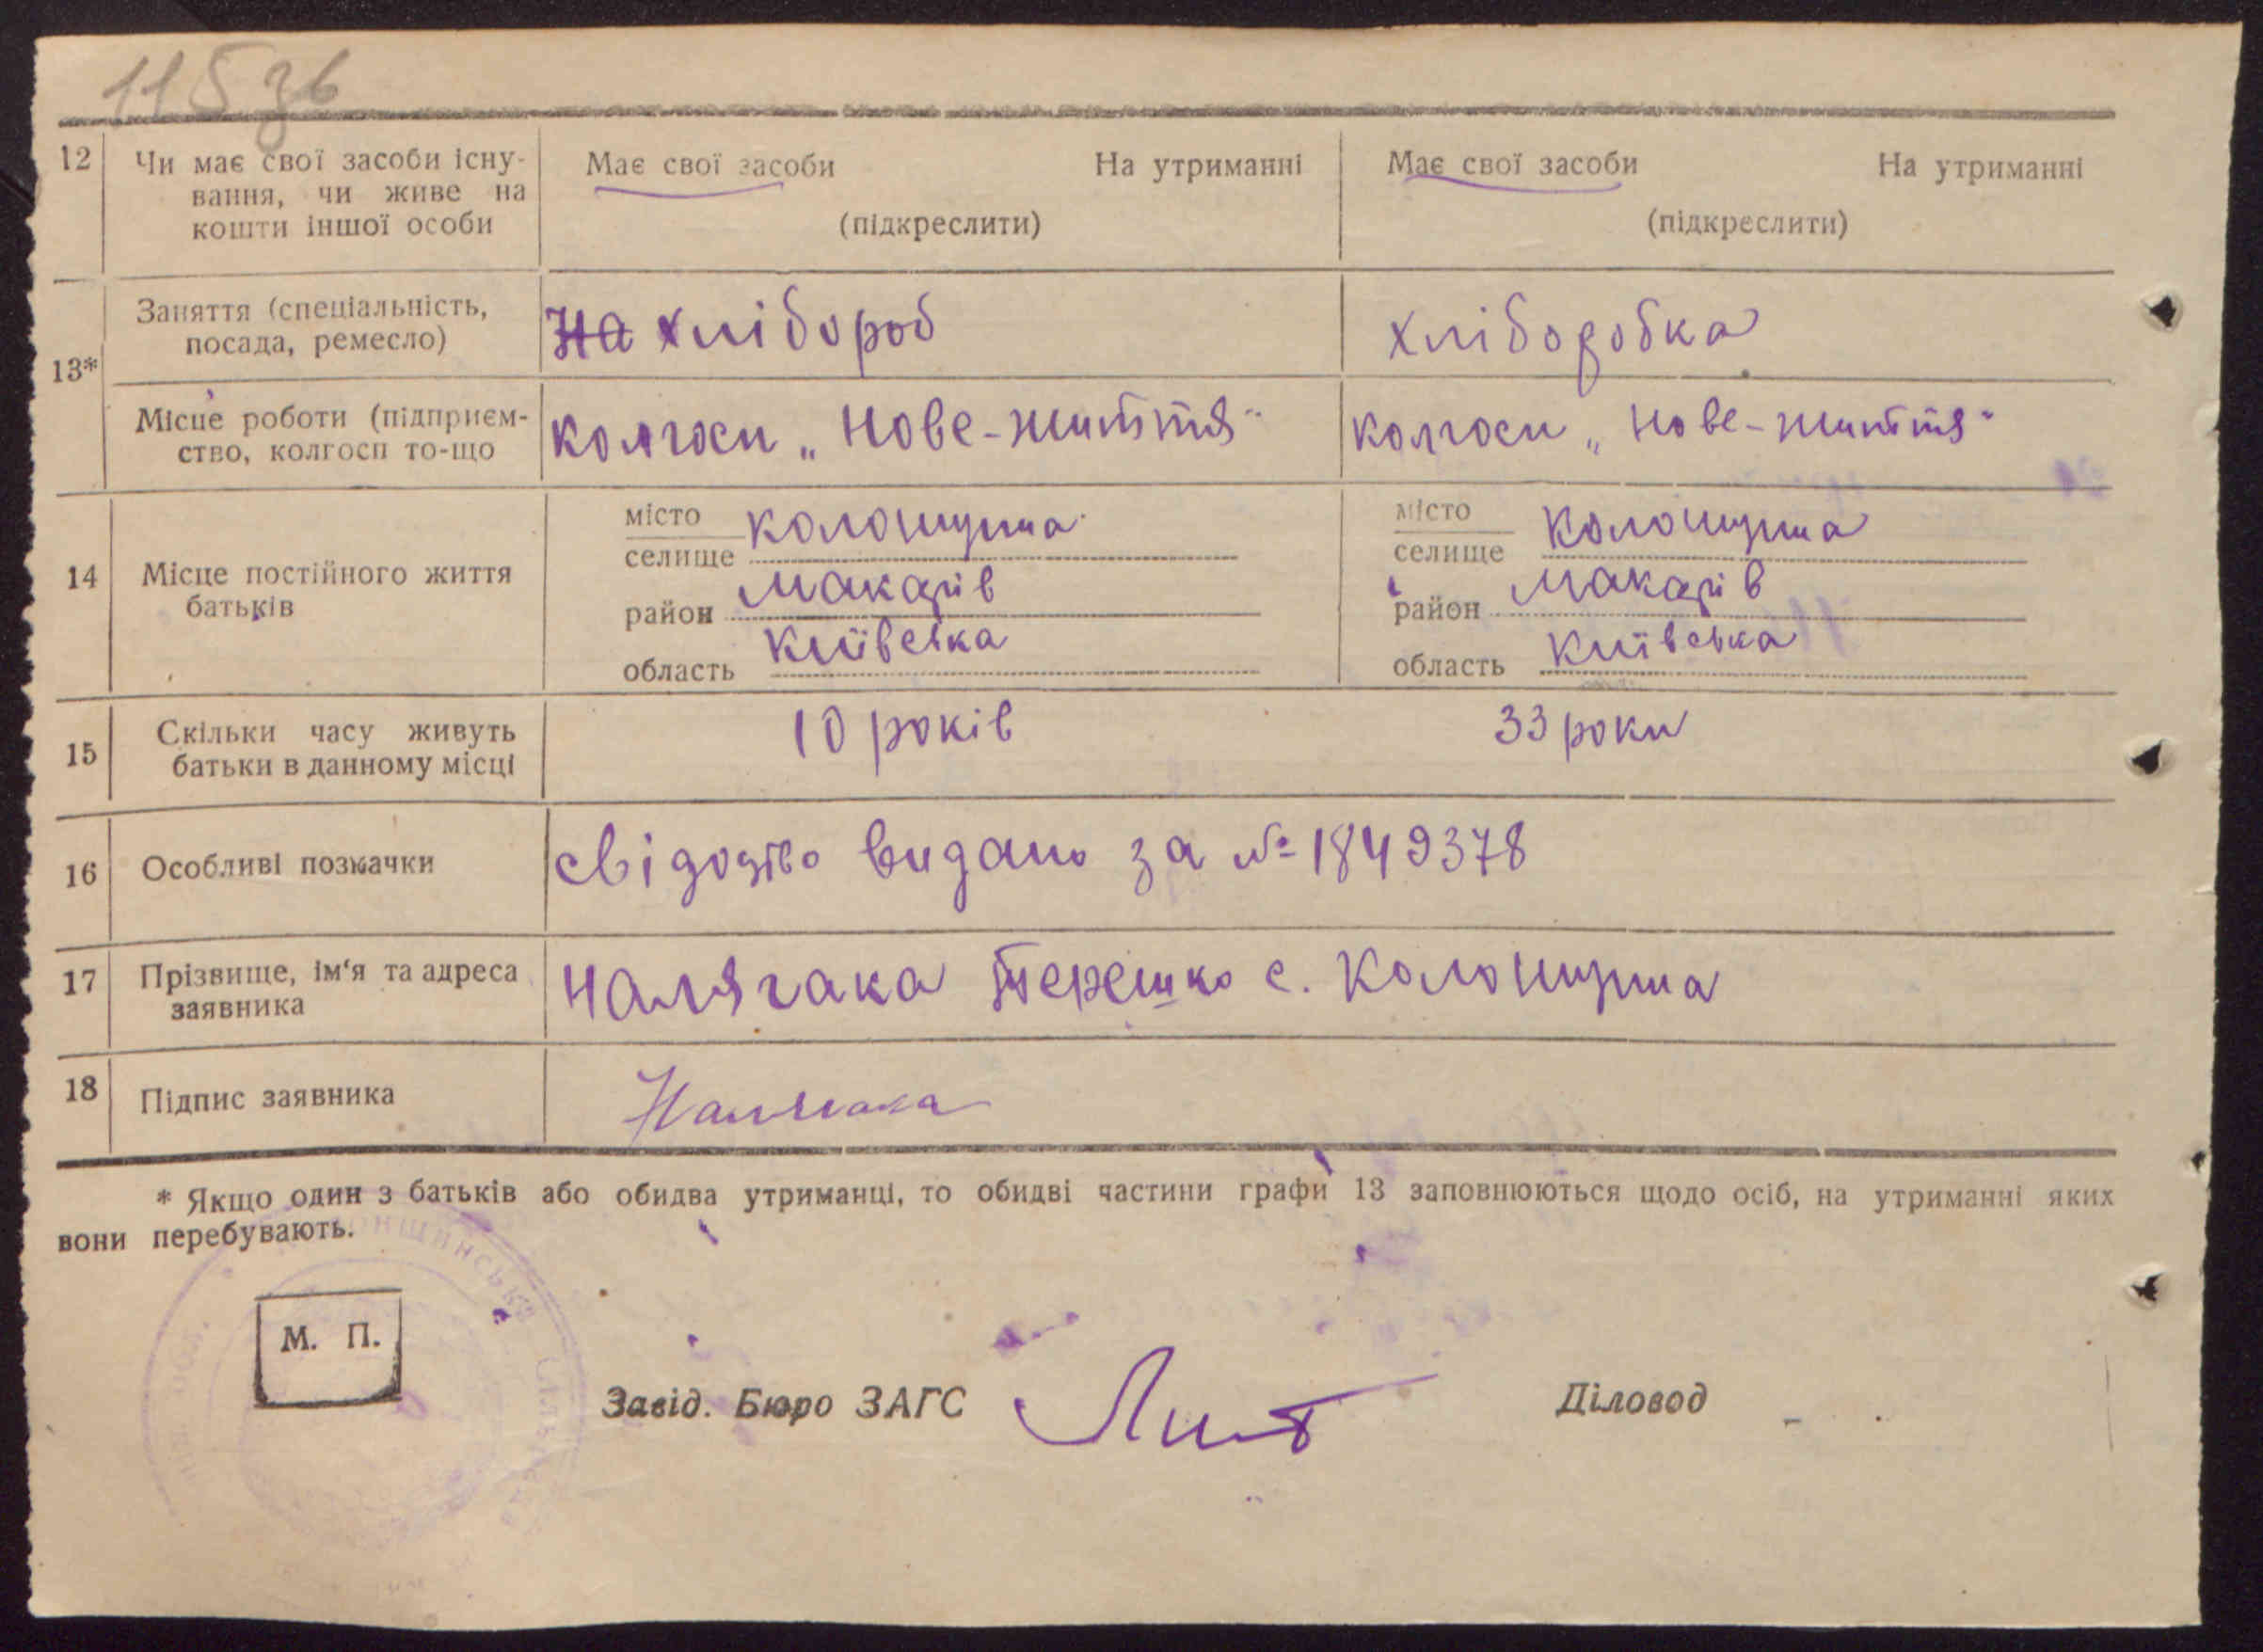 115 зв
12 Чи має свої засоби існу- Має свої засоби На утриманні Має свої засоби На утриманні
вання, чи живе на
кошти іншої особи (підкреслити) (підкреслити)
13* Заняття (спеціальність, На хлібороб хлібородка
посада, ремесло)
Місце роботи (підприєм- колгосп „Нове-життя" колгосп „Нове-життя"
ство, колгосп то-що
14 Місце постійного життя батьків
місто колонщина місто колонщина
селище селище
район Макарів район Макарів
область Київська область Київська
15 Скільки часу живуть 10 років 33 роки
батьки в данному місці
16 Особливі позначки свідоцтво видано за № 1849378
17 Прізвище, ім'я та адреса Налягака Терешко с. Колонщина
заявника
18 Підпис заявника Налягака
* Якщо один з батьків або обидва утриманці, то обидві частини графи 13 заповнюються щодо осіб, на утриманні яких
вони перебувають.
М. П.
Завід. Бюро ЗАГС Діловод